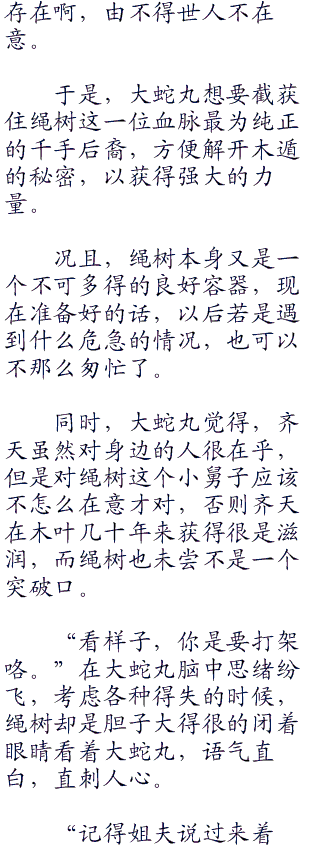 存在啊，由不得世人不在
意。
于是，大蛇丸想要截获
住绳树这一位血脉最为纯正
的千手后裔，方便解开木遁
的秘密，以获得强大的力
量。
况且，绳树本身又是一
个不可多得的良好容器，现
在准备好的话，以后若是遇
到什么危急的情况，也可以
不那么匆忙了。
同时，大蛇丸觉得，齐
天虽然对身边的人很在乎，
但是对绳树这个小舅子应该
不怎么在意才对，否则齐天
在木叶几十年来获得很是滋
润，而绳树也未尝不是一个
突破口。
“看样子，你是要打架
咯。”在大蛇丸脑中思绪纷
飞，考虑各种得失的时候，
绳树却是胆子大得很的闭着
眼睛看着大蛇丸，语气直
白，直刺人心。
“记得姐夫说过来着